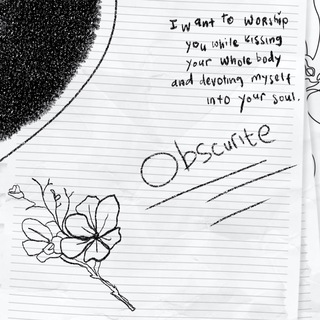 I want to worship
you while kissing
your whole body
and devoting myself
into your soul.
Obscurite